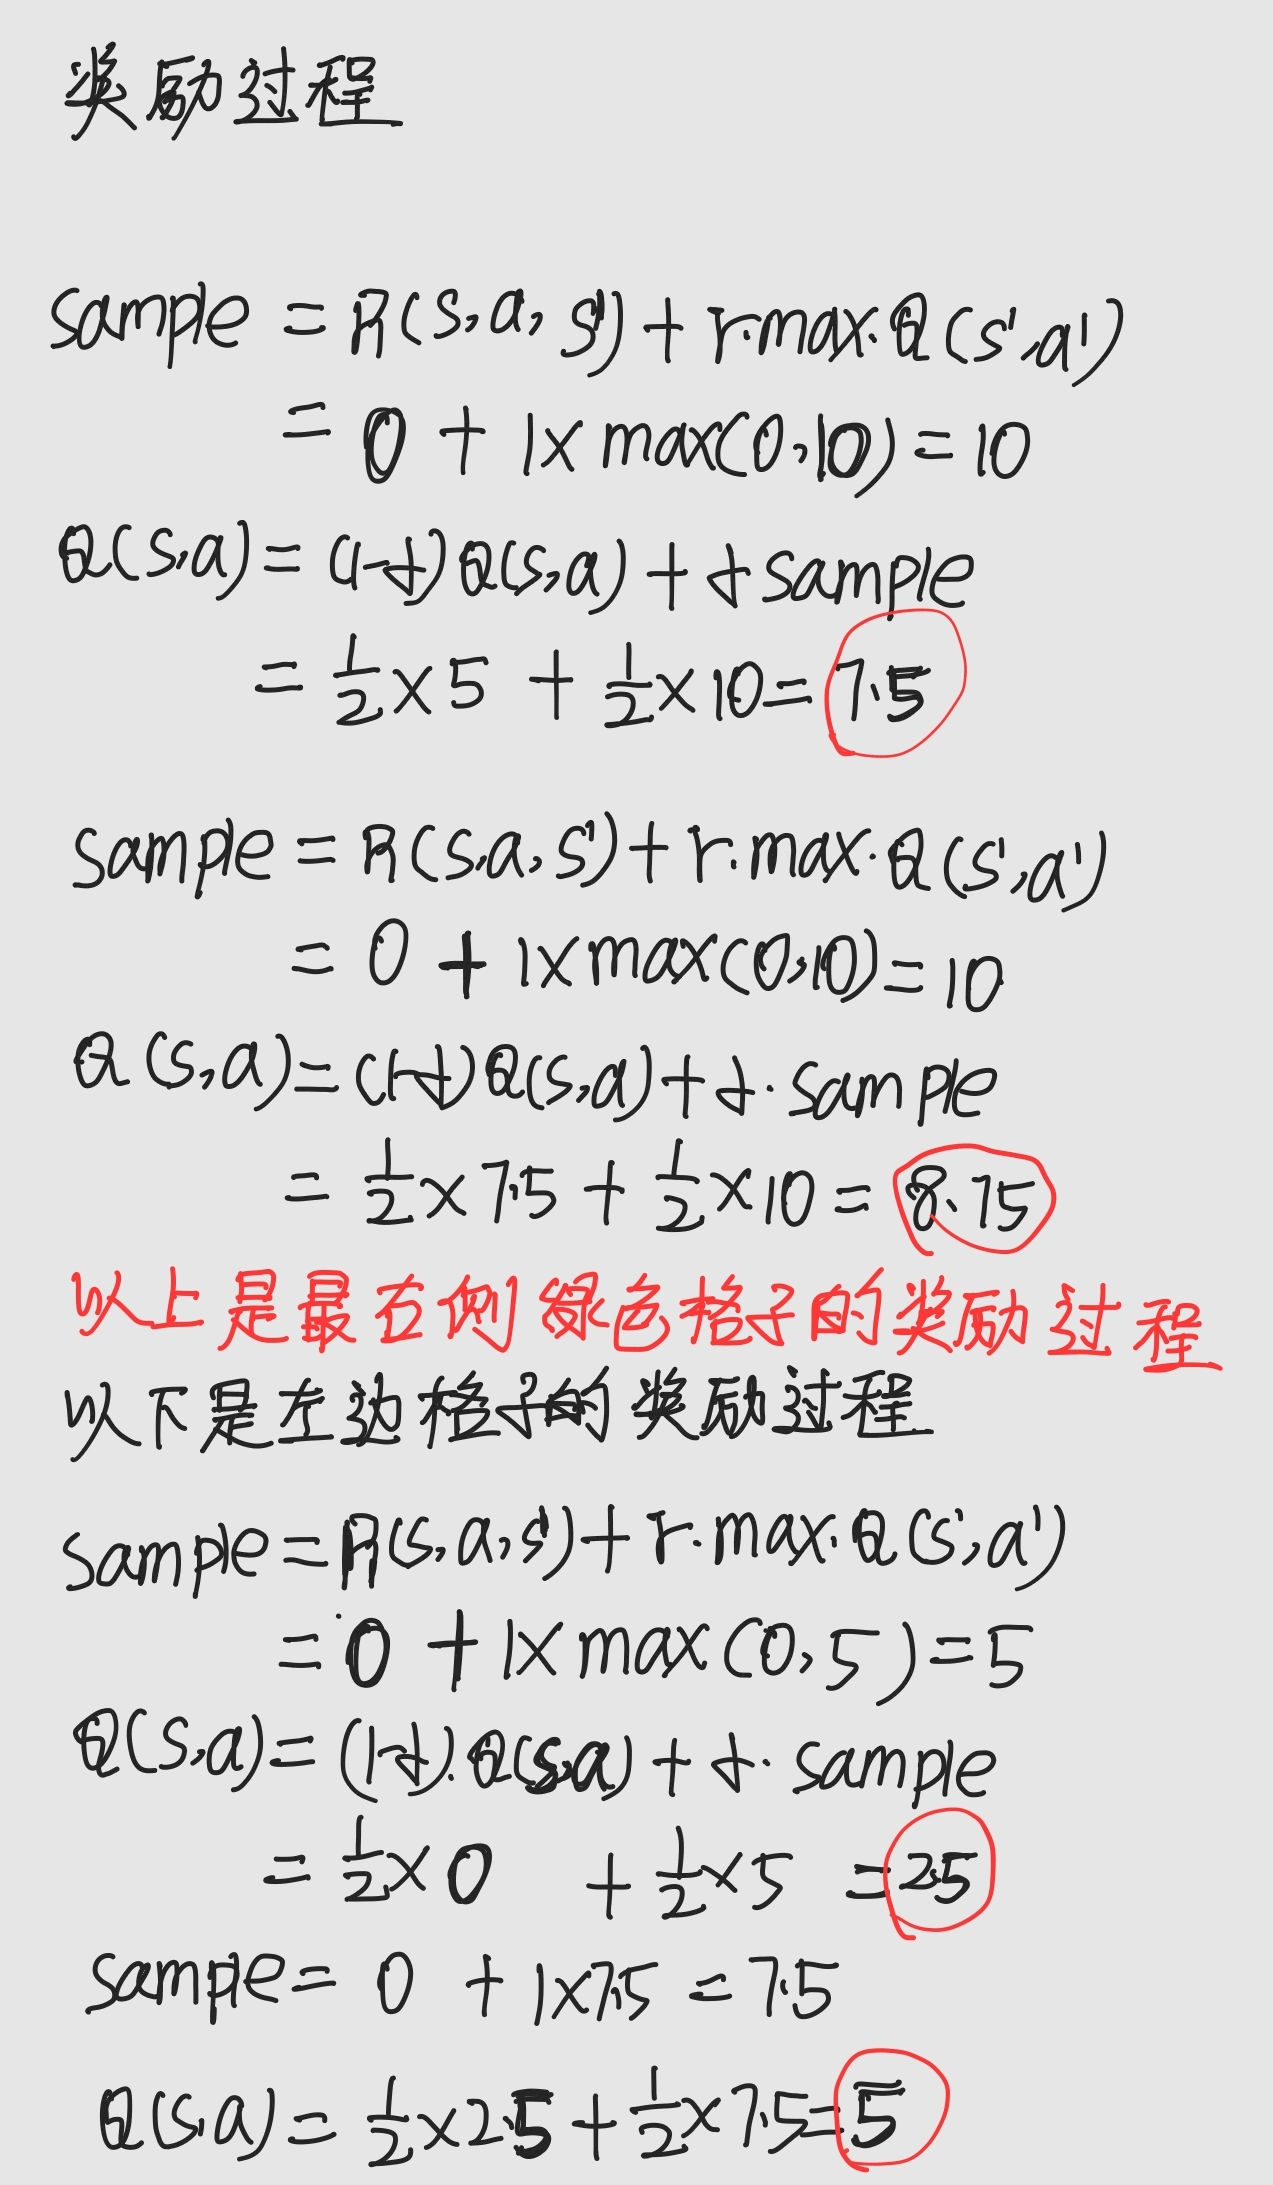 奖励过程
sample = R(s,a,s') + r·max·Q(s',a')
= 0 + 1×max(0,10) = 10
Q(s,a) = (1-α)Q(s,a) + α sample
= 1/2 × 5 + 1/2 × 10 = 7.5
sample = R(s,a,s') + r·max·Q(s',a')
= 0 + 1×max(0,10) = 10
Q(s,a) = (1-α)Q(s,a) + α·sample
= 1/2 × 7.5 + 1/2 × 10 = 8.75
以上是最右侧绿色格子的奖励过程
以下是左边格子的奖励过程
sample = R(s,a,s') + r·max·Q(s',a')
= 0 + 1×max(0,5) = 5
Q(s,a) = (1-α)·Q(s,a) + α·sample
= 1/2 × 0 + 1/2 × 5 = 2.5
sample = 0 + 1×7.5 = 7.5
Q(s,a) = 1/2 × 2.5 + 1/2 × 7.5 = 5